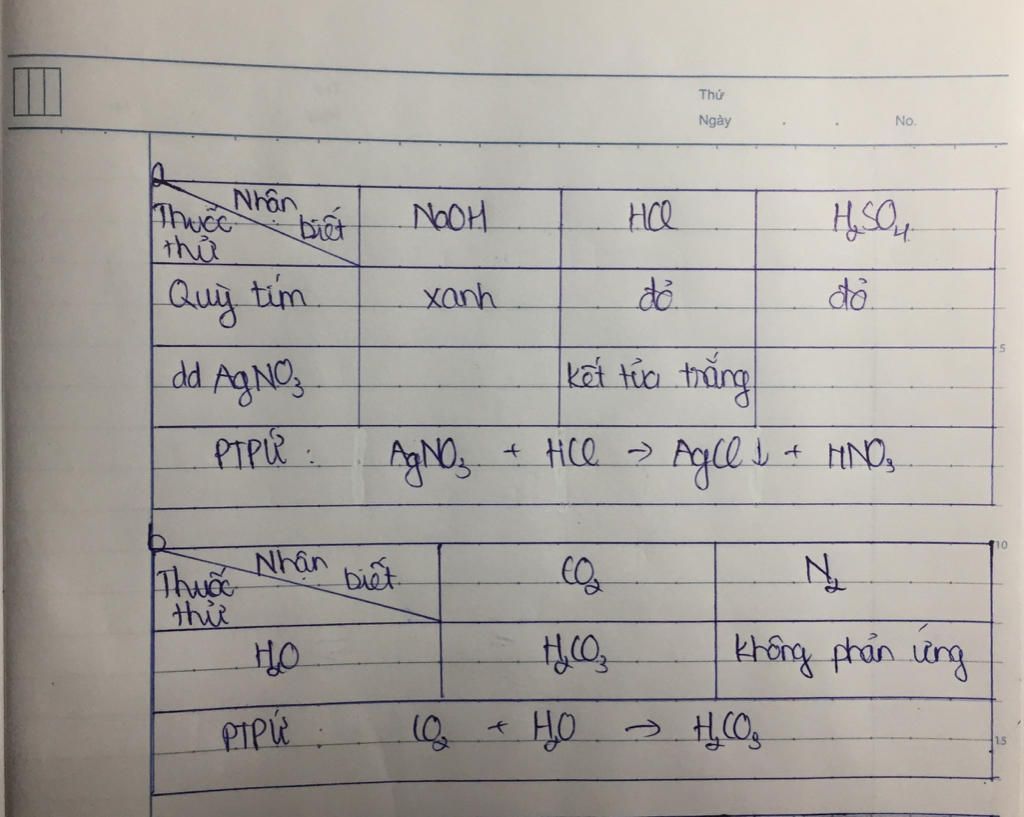 Thứ
Ngày . . No.
a
Nhận biết
Thuốc thử
NaOH HCl H₂SO₄
Quỳ tím xanh đỏ đỏ
5
dd AgNO₃ kết tủa trắng
PTPƯ : AgNO₃ + HCl → AgCl ↓ + HNO₃
b
10
Nhận biết
Thuốc thử
CO₂ N₂
H₂O H₂CO₃ không phản ứng
PTPƯ : CO₂ + H₂O → H₂CO₃
15